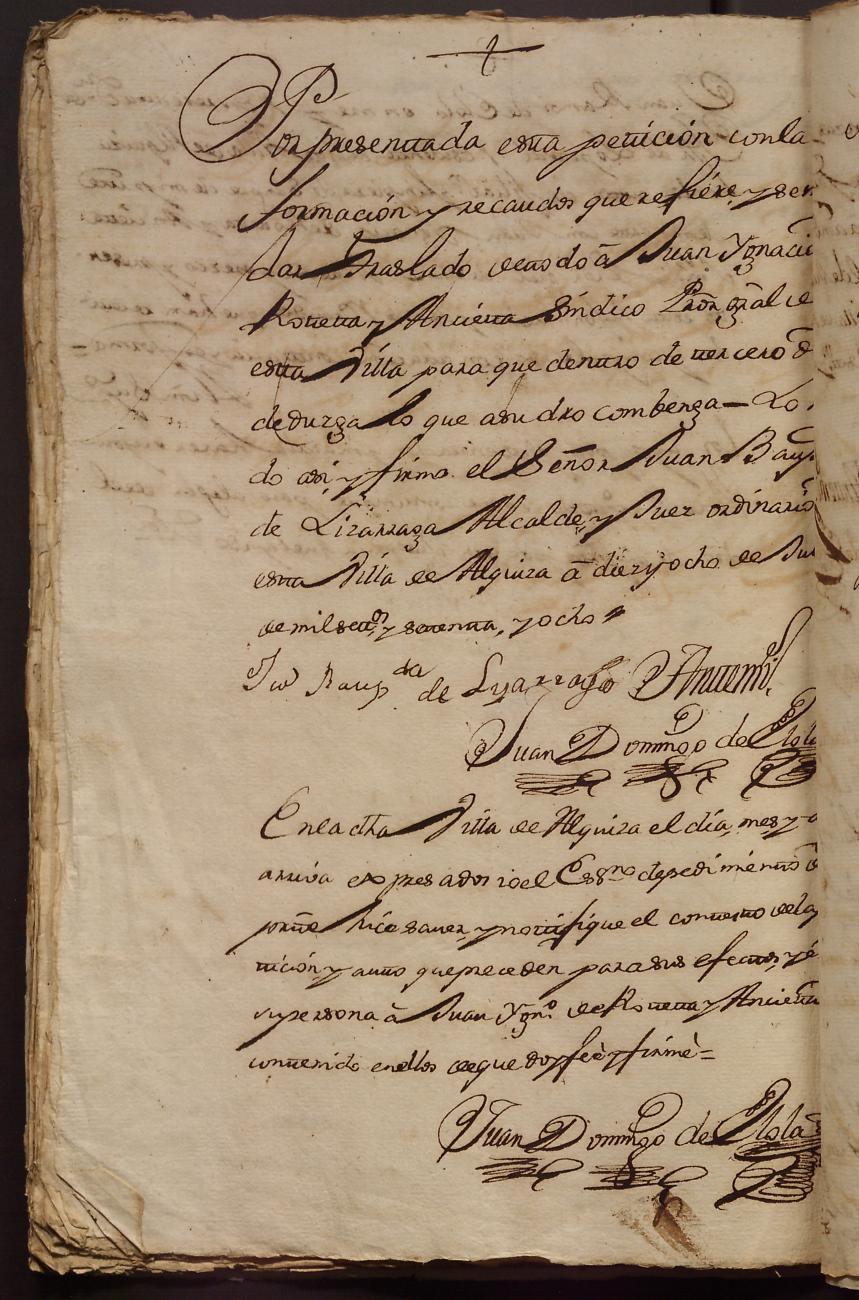 Por presentada esta peticion con la
formacion y recaudos que refiére, y se
dar Traslado de todo â Juan Ygnaci
Roteta y Ancieta Síndico Pror grãl de
esta Villa para que dentro de tercero d
deduzga lo que a su dro combenga = Lo
do asi, y firmo el Señor Juan Bap
de Lizarraga Alcalde, y Juez ordinario
esta Villa de Alquiza â diez y ocho de Ju
de mil settos y setenta, y ocho
Jun Baupta de Lyzarraga Antemi
Juan Domingo de Elola
En la dha Villa de Alquiza el día, mes, y a
arriva expresados io el Essno de pedimento
parte hice saver, y notifiqué el contesto de la
ticion, y auto que preceden para sus efectos, y é
su persona â Juan Ygno de Roteta y Ancieta
contenido en ellos de que doy feè y firmè =
Juan Domingo de Elola